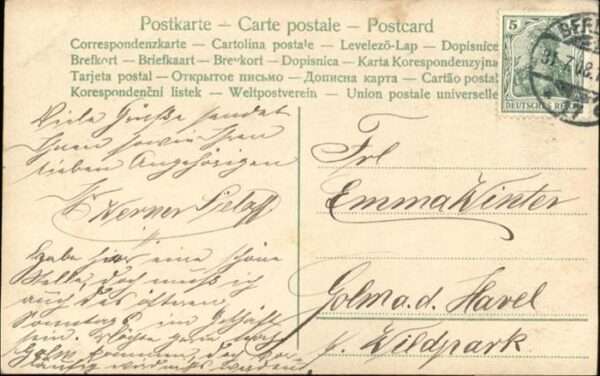 Postkarte – Carte postale – Postcard
Correspondenzkarte – Cartolina postale – Levelező-Lap – Dopisnice
Brefkort – Briefkaart – Brevkort – Dopisnica – Karta Korespondenzyjna
Tarjeta postal – Открытое письмо – Дописна карта – Cartão postal
Korespondenční listek – Weltpostverein – Union postale universelle
5
DEUTSCHES REICH
BERL
31.7.08.
Viele Grüße sendet
Ihnen sowie Ihren
lieben Angehörigen
Werner
Habe hier eine schöne
Stelle, doch muß ich
auch des öfteren
Sonntags im Geschäft
sein. Möchte gern nach
Golm kommen, doch vor-
läufig wird nichts werden
Frl
Emma Winter
Golm a. d. Havel
Wildpark